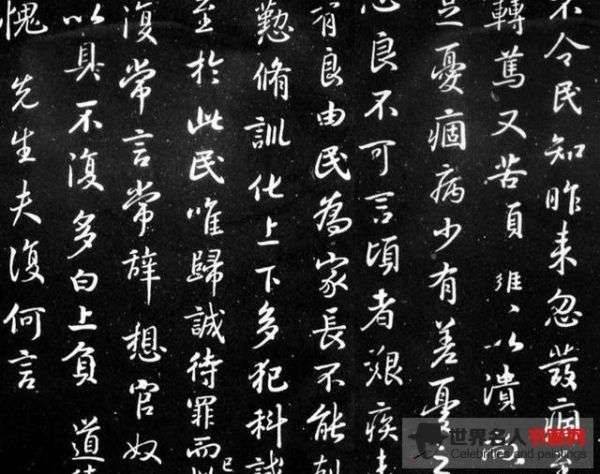 不令民知昨来忽發痼
轉篤又苦頁維、以潰
足憂痼病少有善憂之
心良不可言頃者艱疾未
有良由民為家長不能剋
懃脩訓化上下多犯科誡
至於此民唯歸誠待罪而已此
復常言常辭想官奴
以具不復多白上負道德
愧先生夫復何言
世界名人书画网
Celebrities and paintings